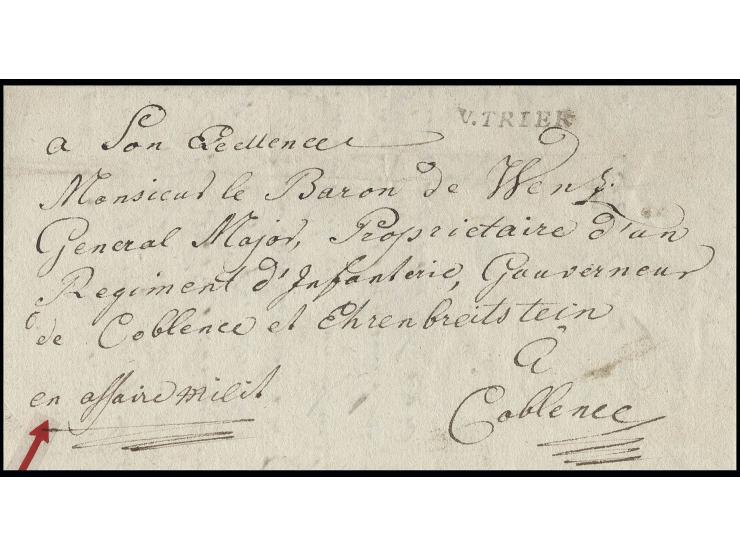 V. TRIER
a Son Excellence
Monsieur le Baron de Wenz
General Major, Proprietaire d'un
Regiment d'Infanterie, Gouverneur
de Coblence et Ehrenbreitstein
à
Coblence
en affaire milit